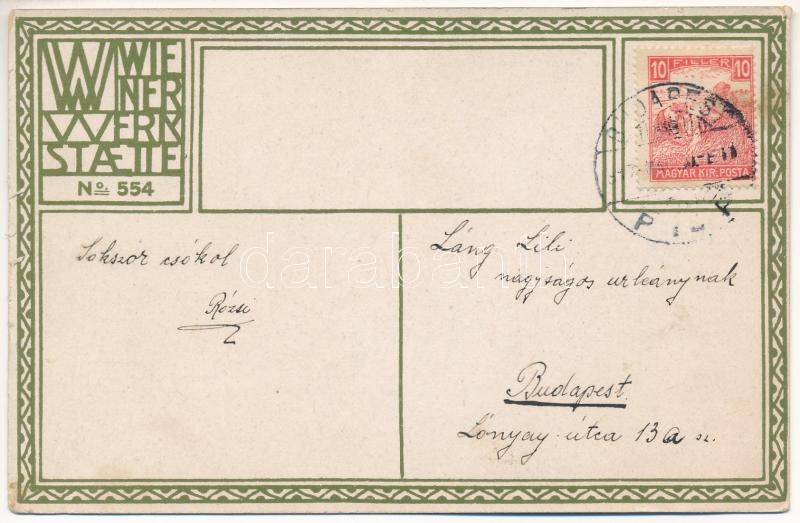 WIE
NER
WERK
STÆTTE
No. 554
10 FILLER 10
MAGYAR KIR. POSTA
BUDAPEST
Sokszor csókol
Rózsi
Láng Lili
nagyságos urleánynak
Budapest.
Lónyay-útca 13a sz.
darabanth